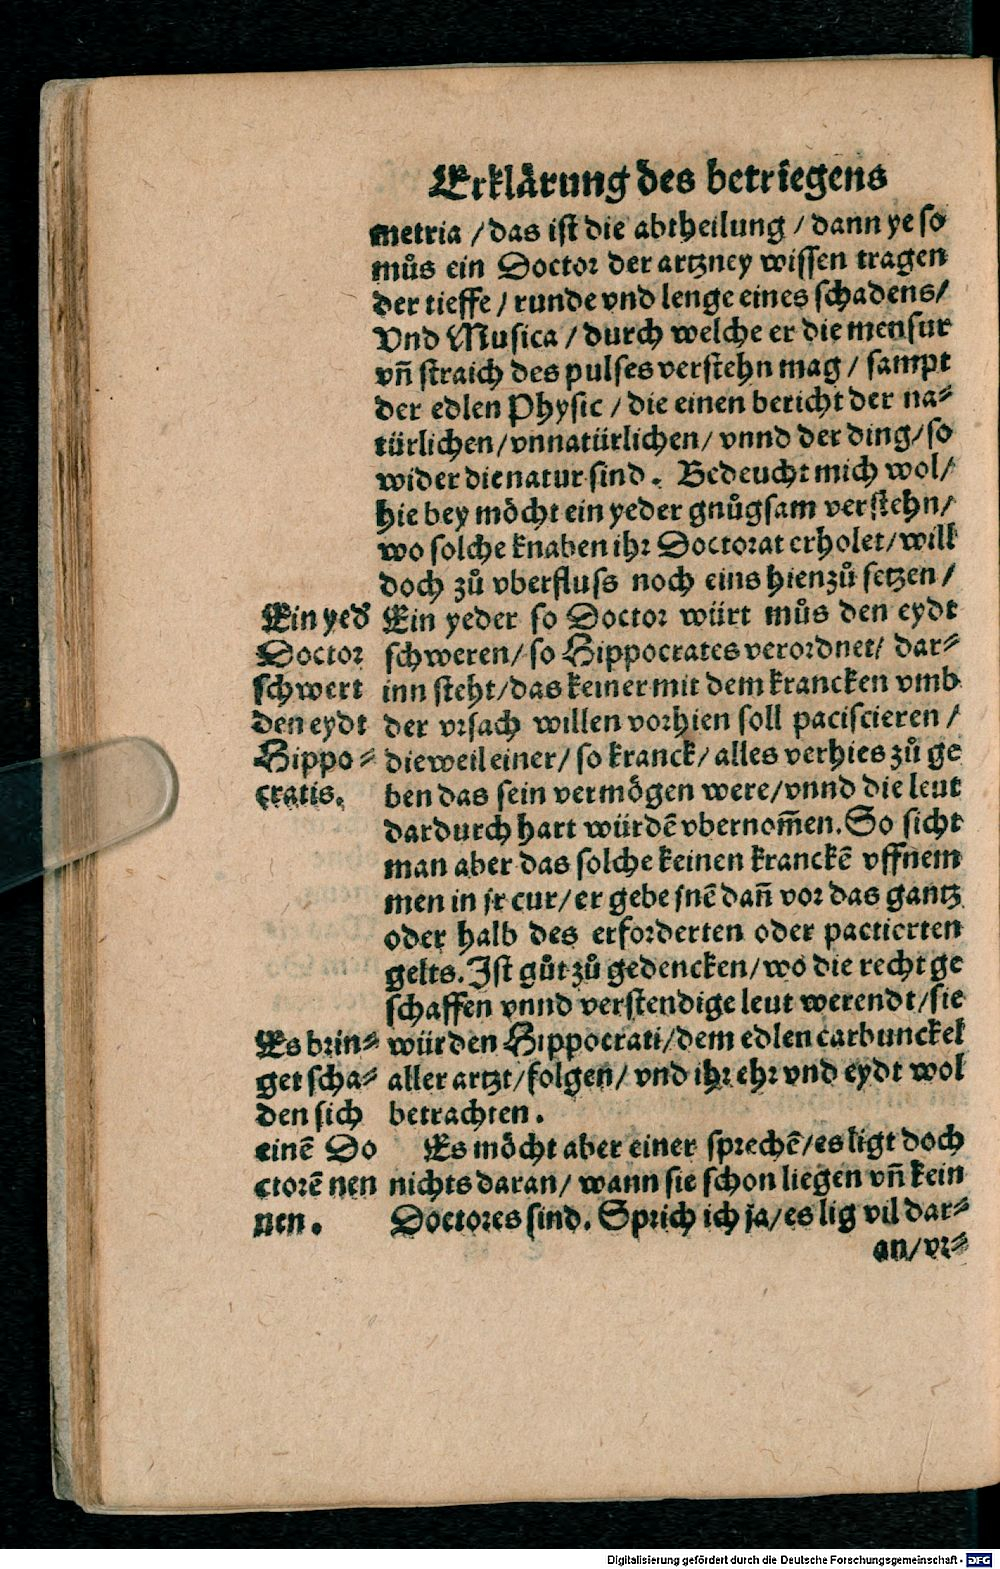 Erklärung des betriegens
metria / das ist die abtheilung / dann ye so
můs ein Doctor der artzney wissen tragen
der tieffe / runde vnd lenge eines schadens/
Vnd Musica / durch welche er die mensur
vñ straich des pulses verstehn mag / sampt
der edlen Physic / die einen bericht der na-
türlichen/ vnnatürlichen/ vnnd der ding/ so
wider die natur sind. Bedeucht mich wol/
hie bey möcht ein yeder gnůgsam verstehn/
wo solche knaben ihr Doctorat erholet/ will
doch zů vberfluss noch eins hienzů setzen /
Ein yeder so Doctor würt můs den eydt
schweren/ so Hippocrates verordnet/ dar-
inn steht/ das keiner mit dem krancken vmb
der vrsach willen vorhien soll paciscieren /
dieweil einer/ so kranck/ alles verhies zů ge
ben das sein vermögen were/ vnnd die leut
dardurch hart würdẽ vbernom̃en. So sicht
man aber das solche keinen kranckẽ vffnem
men in jr cur/ er gebe jnẽ dañ vor das gantz
oder halb des erforderten oder pactierten
gelts. Ist gůt zů gedencken/ wo die recht ge
schaffen vnnd verstendige leut werendt/ sie
würden Hippocrati/ dem edlen carbunckel
aller artzt/ folgen/ vnd ihr ehr vnd eydt wol
betrachten.
Es möcht aber einer sprechẽ/ es ligt doch
nichts daran/ wann sie schon liegen vñ kein
Doctores sind. Sprich ich ja/ es lig vil dar-
an/ vr-
Ein yed̃
Doctor
schwert
den eydt
Hippo-
cratis.
Es brin-
get scha-
den sich
einẽ Do
ctorẽ nen
nen.
Digitalisierung gefördert durch die Deutsche Forschungsgemeinschaft - DFG